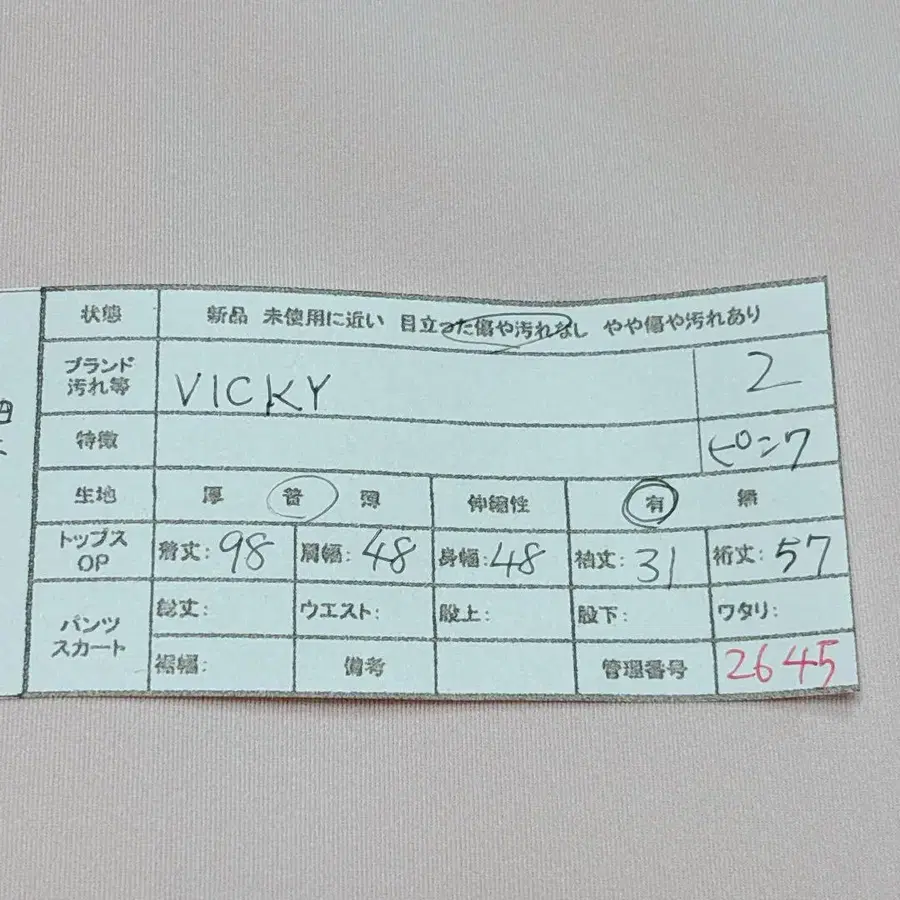 状態 新品 未使用に近い 目立った傷や汚れなし やや傷や汚れあり
ブランド 汚れ等 VICKY 2
特徴 ピンク
生地 厚 普 薄 伸縮性 有 無
トップス OP 着丈: 98 肩幅: 48 身幅: 48 袖丈: 31 裄丈: 57
パンツ スカート 総丈: ウエスト: 股上: 股下: ワタリ:
裾幅: 備考 管理番号 2645